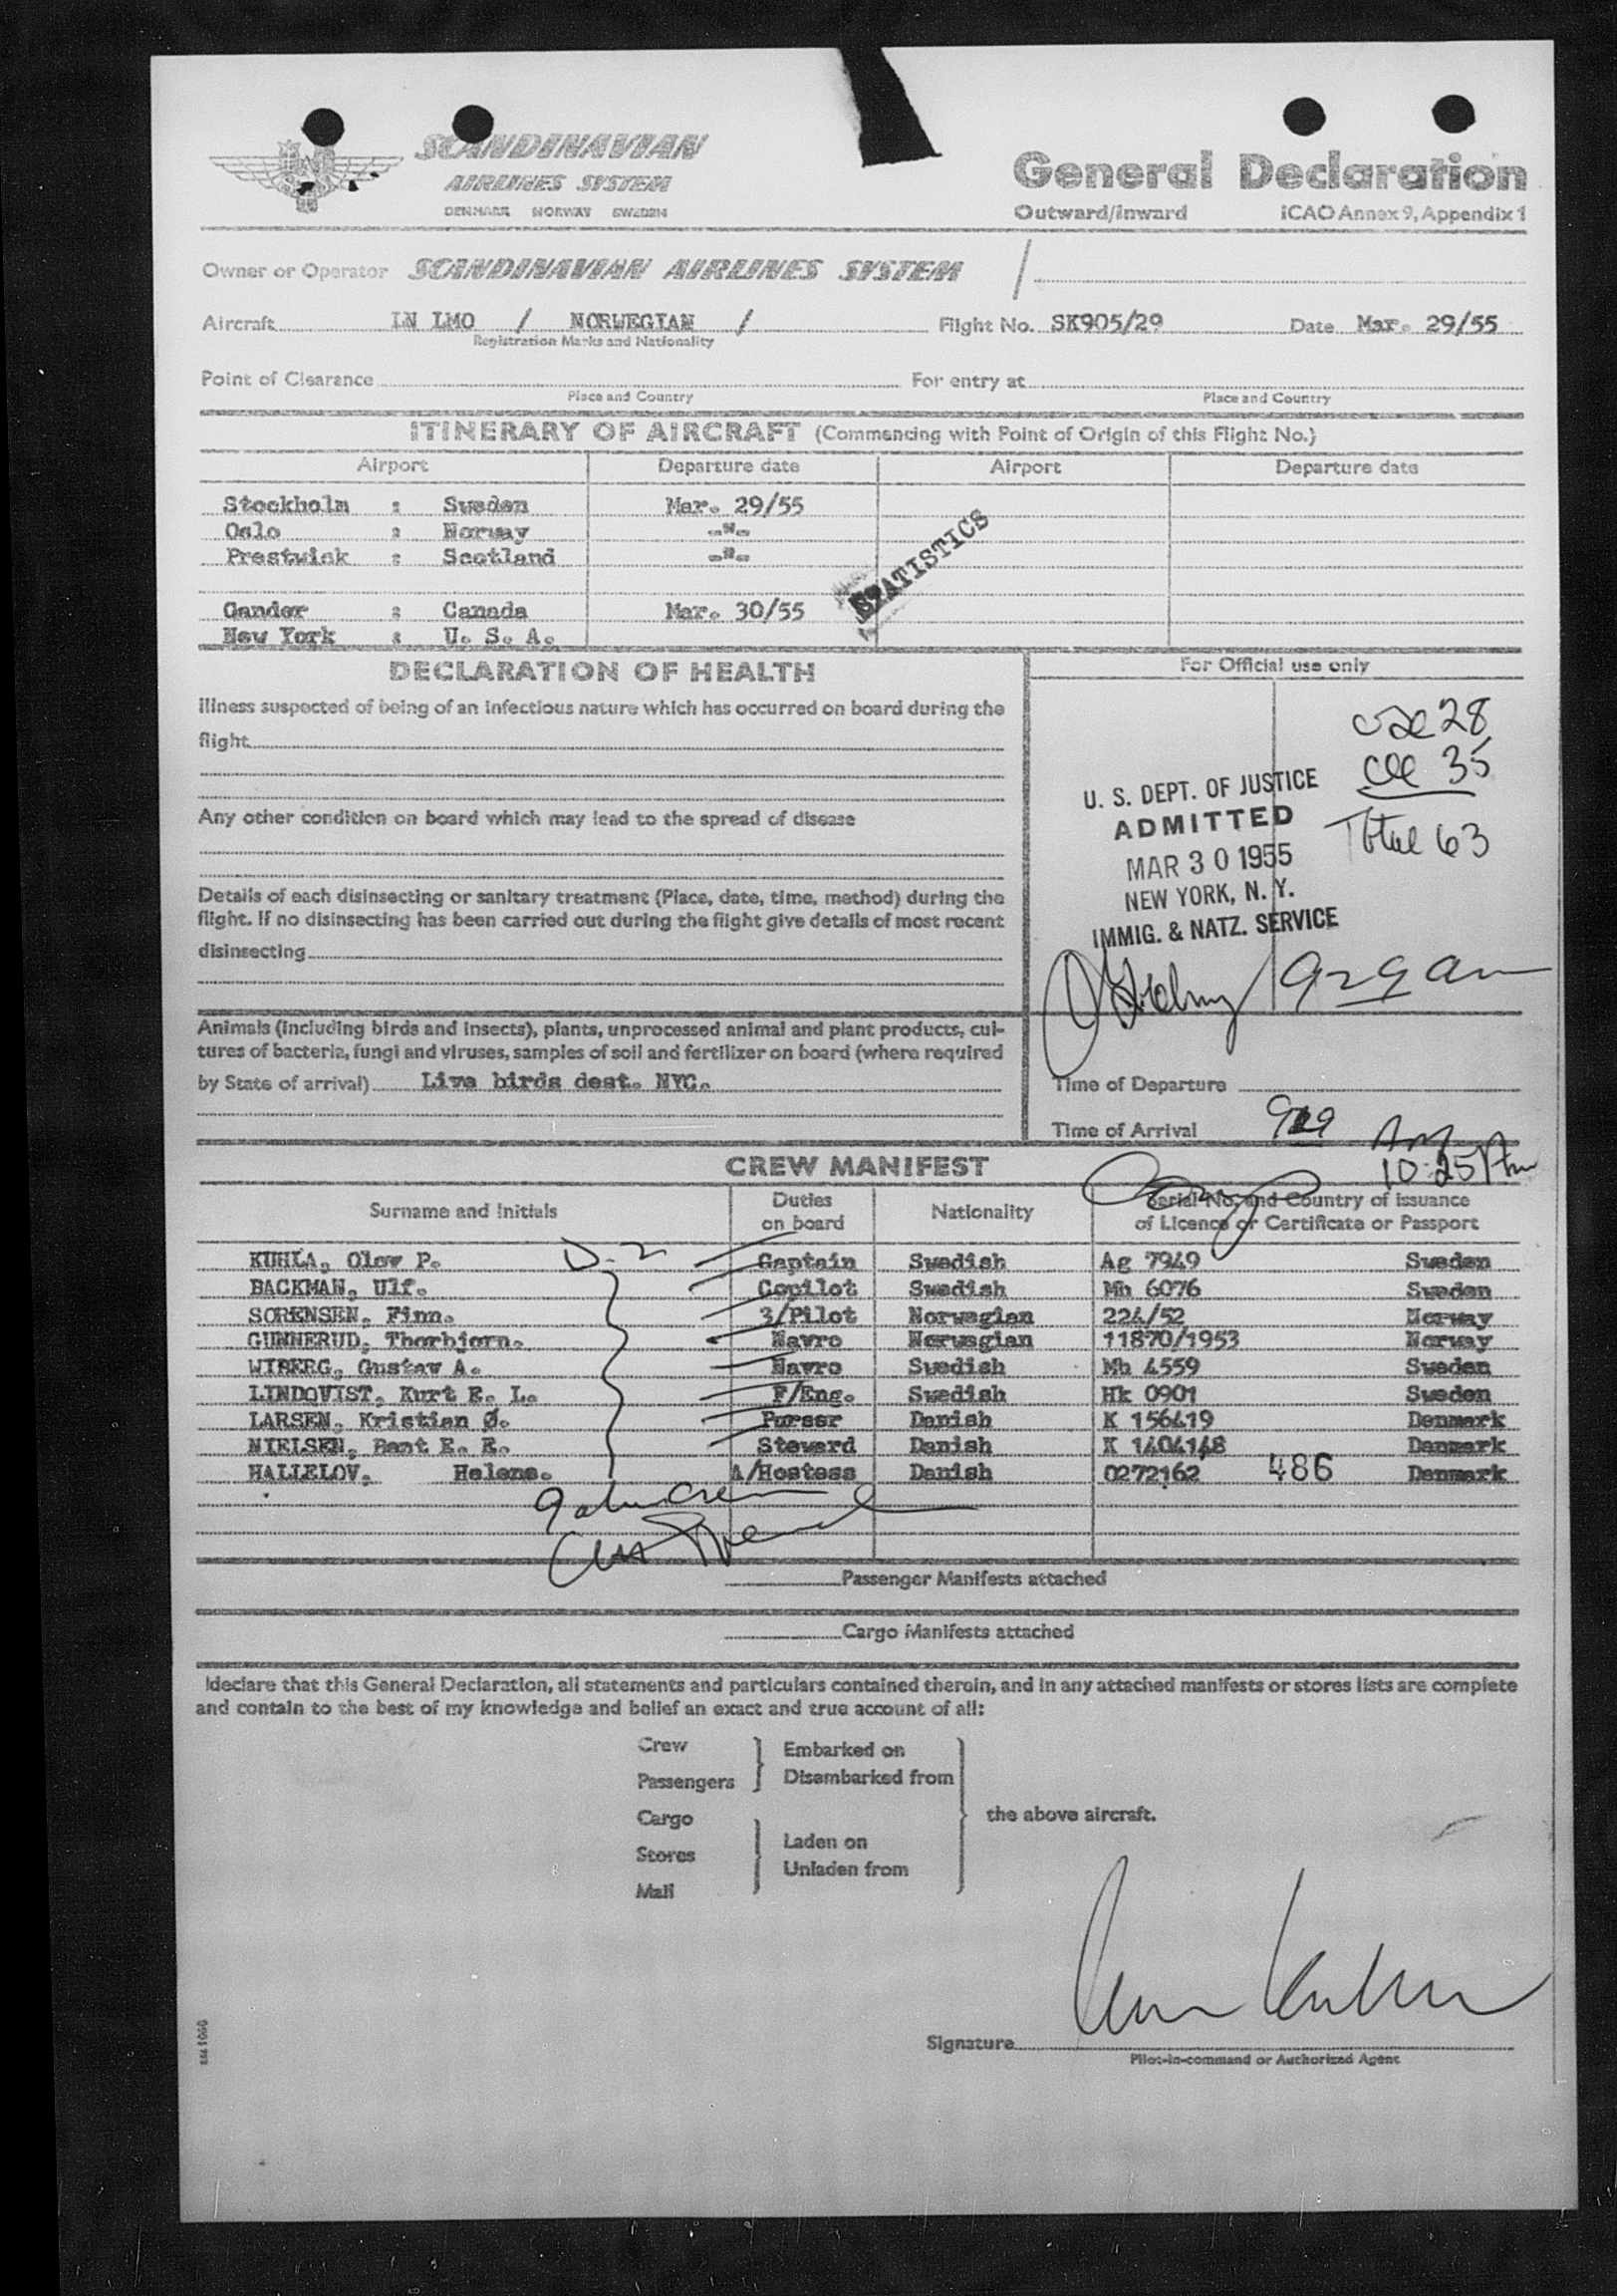 SCANDINAVIAN
AIRLINES SYSTEM
DENMARK NORWAY SWEDEN
General Declaration
Outward/Inward ICAO Annex 9, Appendix 1
Owner or Operator SCANDINAVIAN AIRLINES SYSTEM /
Aircraft LN LMO / NORWEGIAN / Flight No. SK905/29 Date Mar. 29/55
Registration Marks and Nationality
Point of Clearance For entry at
Place and Country Place and Country
ITINERARY OF AIRCRAFT (Commencing with Point of Origin of this Flight No.)
Airport Departure date Airport Departure date
Stockholm : Sweden Mar. 29/55
Oslo : Norway -"-
Prestwick : Scotland -"-
STATISTICS
Gander : Canada Mar. 30/55
New York : U. S. A.
DECLARATION OF HEALTH
Illness suspected of being of an infectious nature which has occurred on board during the
flight
Any other condition on board which may lead to the spread of disease
Details of each disinsecting or sanitary treatment (Place, date, time, method) during the
flight. If no disinsecting has been carried out during the flight give details of most recent
disinsecting
Animals (including birds and insects), plants, unprocessed animal and plant products, cul-
tures of bacteria, fungi and viruses, samples of soil and fertilizer on board (where required
by State of arrival) Live birds dest. NYC.
For Official use only
28
35
Total 63
U. S. DEPT. OF JUSTICE
ADMITTED
MAR 30 1955
NEW YORK, N. Y.
IMMIG. & NATZ. SERVICE
929 am
Time of Departure
Time of Arrival 929 AM
10:25
CREW MANIFEST
Surname and Initials Duties on board Nationality Serial No. and Country of issuance of Licence or Certificate or Passport
KUHLA, Olov P. D-2 Captain Swedish Ag 7949 Sweden
BACKMAN, Ulf. Copilot Swedish Mh 6076 Sweden
SORENSEN, Finn. 3/Pilot Norwegian 224/52 Norway
GUNNERUD, Thorbjorn. Navro Norwegian 11870/1953 Norway
WIBERG, Gustav A. Navro Swedish Mh 4559 Sweden
LINDQVIST, Kurt E. L. F/Eng. Swedish Hk 0901 Sweden
LARSEN, Kristian Ø. Purser Danish K 156419 Denmark
NIELSEN, Bent E. E. Steward Danish K 1404148 Denmark
HALLELOV. Helene. A/Hostess Danish 0272162 486 Denmark
Passenger Manifests attached
Cargo Manifests attached
I declare that this General Declaration, all statements and particulars contained therein, and in any attached manifests or stores lists are complete
and contain to the best of my knowledge and belief an exact and true account of all:
Crew
Passengers
Embarked on
Disembarked from
Cargo
Stores
Mail
Laden on
Unladen from
the above aircraft.
Signature
Pilot-in-command or Authorized Agent